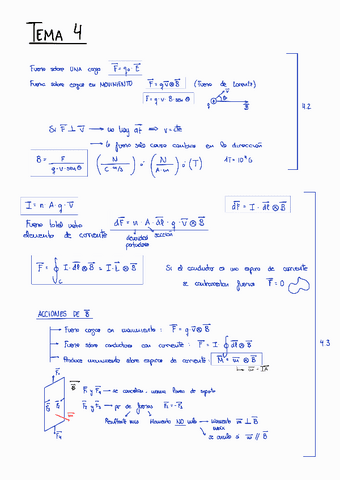 TEMA 4
Fuerza sobre UNA carga F = q·E
Fuerza sobre cargas en MOVIMIENTO F = q·v⊗B (Fuerza de Lorentz)
F = q·v·B·senθ
4.2
Si F ⊥ v → no hay aF ⇒ v = cte
→ la fuerza sólo causa cambios en la dirección
B = F / q·v·senθ (N / C·m/s) ó (N / A·m) ó (T) 1T = 10⁴ G
I = n·A·q·v
dF = I·dl⊗B
Fuerza total sobre elemento de corriente dF = n·A·dl·q·v⊗B
densidad portadores sección
F = ∮ I·dl⊗B = I·L⊗B
C
Si el conductor es una espira de corriente
se contrarrestan fuerzas F = 0
ACCIONES DE B
→ Fuerza cargas en movimiento: F = q·v⊗B
→ Fuerza sobre conductores con corriente: F = I·∮dl⊗B
4.3
→ Produce momento sobre espiras de corriente: M = m⊗B
→ m = I·A
F₁ y F₄ → se cancelan - misma línea de
F₂ y F₃ → par de fuerzas F₂ = -F₃
Resultante nula Momento NO nulo → Momento máx m ⊥ B
→ se anula si m // B